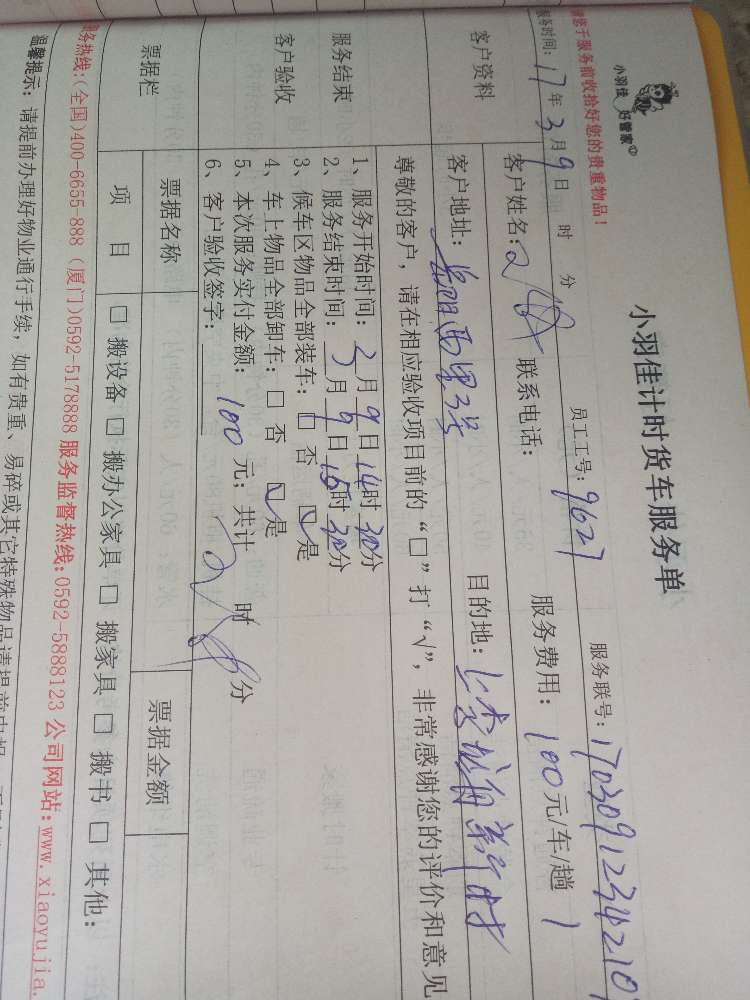 小羽佳 好管家
小羽佳计时货车服务单
请您于服务前收拾好您的贵重物品！
服务时间：17年3月9日 时 分 员工工号：9627 服务联号：1703091234210
客户资料
客户姓名： 联系电话： 服务费用：100元/车/趟 1
客户地址： 目的地：
尊敬的客户，请在相应验收项目前的“□”打“√”，非常感谢您的评价和意见
服务结束
客户验收
1、服务开始时间：3月9日14时30分
2、服务结束时间：3月9日15时30分
3、候车区物品全部装车：□ 否 ☑ 是
4、车上物品全部卸车：□ 否 ☑ 是
5、本次服务实付金额：100元；共计 时 分
6、客户验收签字：
票据栏
票据名称 票据金额
项 目 □ 搬设备 □ 搬办公家具 □ 搬家具 □ 搬书 □ 其他：
服务热线：(全国)400-6655-888 (厦门)0592-5178888 服务监督热线：0592-5888123 公司网站：www.xiaoyujia.
温馨提示：请提前办理好物业通行手续，如有贵重、易碎或其它特殊物品请提前